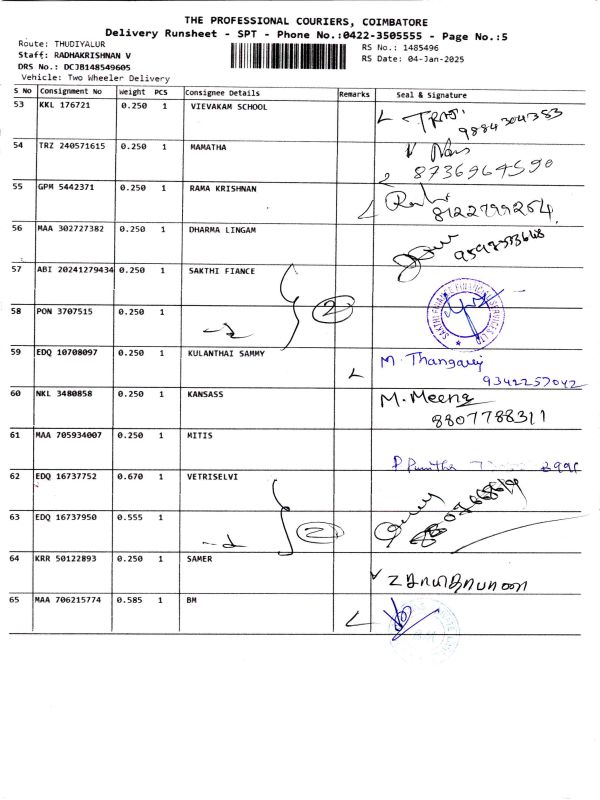 THE PROFESSIONAL COURIERS, COIMBATORE
Delivery Runsheet - SPT - Phone No.:0422-3505555 - Page No.:5
Route: THUDIYALUR
RS No.: 1485496
Staff: RADHAKRISHNAN V
RS Date: 04-Jan-2025
DRS No.: DCJB148549605
Vehicle: Two Wheeler Delivery
S No Consignment No Weight PCS Consignee Details Remarks Seal & Signature
53 KKL 176721 0.250 1 VIEVAKAM SCHOOL
9884304353
54 TRZ 240571615 0.250 1 MAMATHA
8736964590
55 GPM 5442371 0.250 1 RAMA KRISHNAN
8122799264
56 MAA 302727382 0.250 1 DHARMA LINGAM
57 ABI 20241279434 0.250 1 SAKTHI FIANCE
2
58 PON 3707515 0.250 1
59 EDQ 10708097 0.250 1 KULANTHAI SAMMY M. Thangaraj
9342257042
60 NKL 3480858 0.250 1 KANSASS M. Meena
8807788311
61 MAA 705934007 0.250 1 MITIS
P Punitha
62 EDQ 16737752 0.670 1 VETRISELVI
2
63 EDQ 16737950 0.555 1
64 KRR 50122893 0.250 1 SAMER
65 MAA 706215774 0.585 1 BM